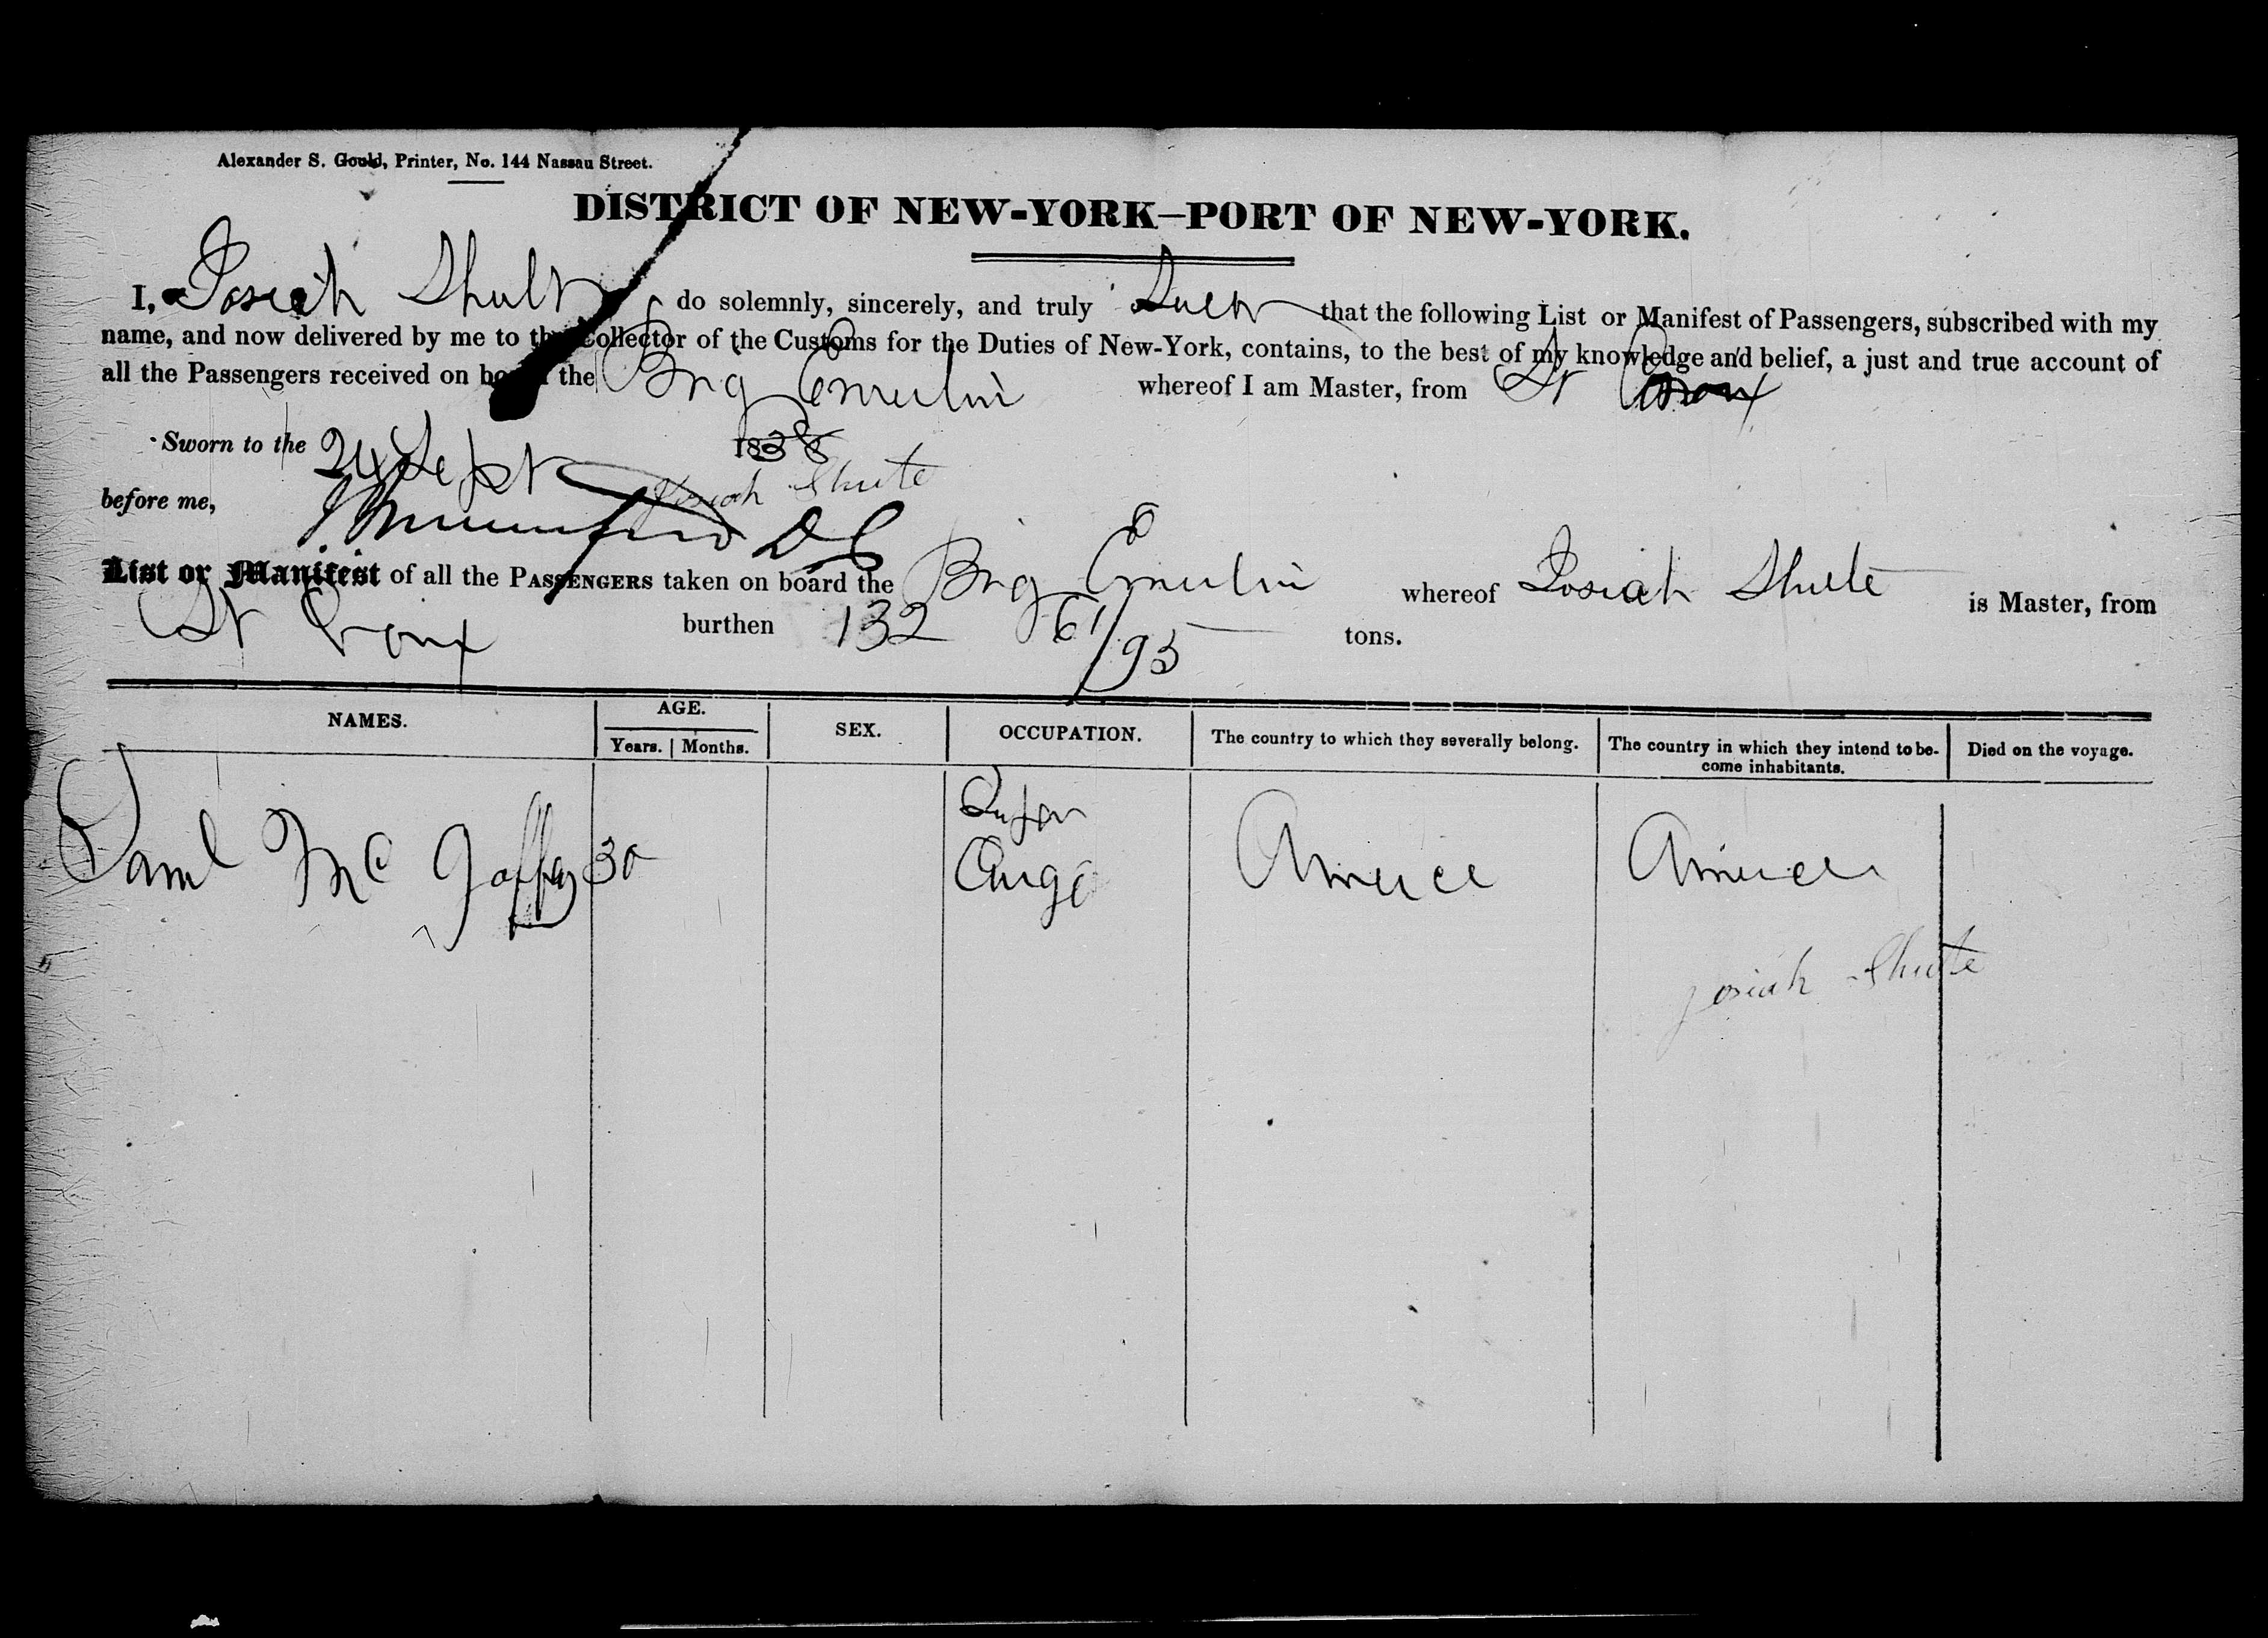 Alexander S. Gould, Printer, No. 144 Nassau Street.
DISTRICT OF NEW-YORK—PORT OF NEW-YORK.
I, Josiah Shute do solemnly, sincerely, and truly Swear that the following List or Manifest of Passengers, subscribed with my
name, and now delivered by me to the Collector of the Customs for the Duties of New-York, contains, to the best of my knowledge and belief, a just and true account of
all the Passengers received on board the Brig Emeline whereof I am Master, from St Croix
Sworn to the 24 Sept 1838
Josiah Shute
before me, DC
List or Manifest of all the PASSENGERS taken on board the Brig Emeline whereof Josiah Shute is Master, from
St Croix burthen 132 61/95 tons.
NAMES. AGE. SEX. OCCUPATION. The country to which they severally belong. The country in which they intend to be- Died on the voyage.
Years. Months. come inhabitants.
Super
Saml Mc Gaffey 30 Cargo America America
Josiah Shute